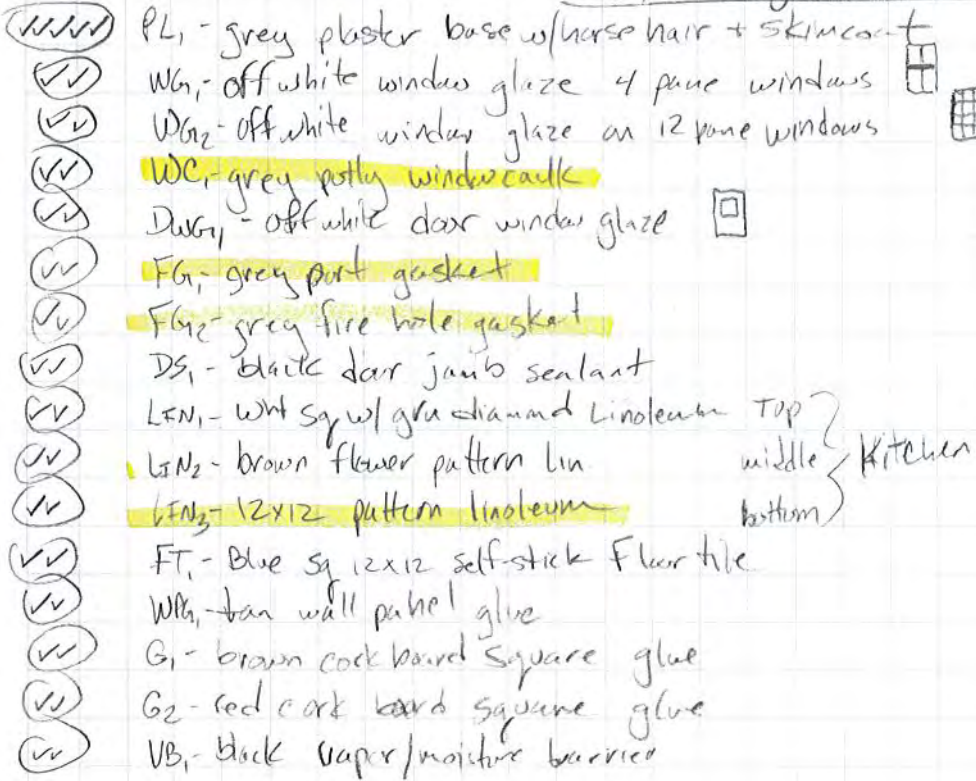 ✓✓✓✓✓ PL₁ - grey plaster base w/horse hair + skimcoat
✓✓ WG₁ - off white window glaze 4 pane windows
✓✓ WG₂ - off white window glaze on 12 pane windows
✓✓ WC₁ - grey putty window caulk
✓✓ DWG₁ - off white door window glaze
✓✓ FG₁ - grey port gasket
✓✓ FG₂ - grey fire hole gasket
✓✓ DS₁ - black door jamb sealant
✓✓ LIN₁ - wht sq w/ grn diamond Linoleum Top
✓✓ LIN₂ - brown flower pattern lin middle Kitchen
✓✓ LIN₃ - 12x12 pattern linoleum bottom
✓✓ FT₁ - Blue sq 12x12 self-stick Floor tile
✓✓ WPG₁ - tan wall panel glue
✓✓ G₁ - brown cork board square glue
✓✓ G₂ - red cork board square glue
✓✓ VB₁ - black vapor/moisture barrier